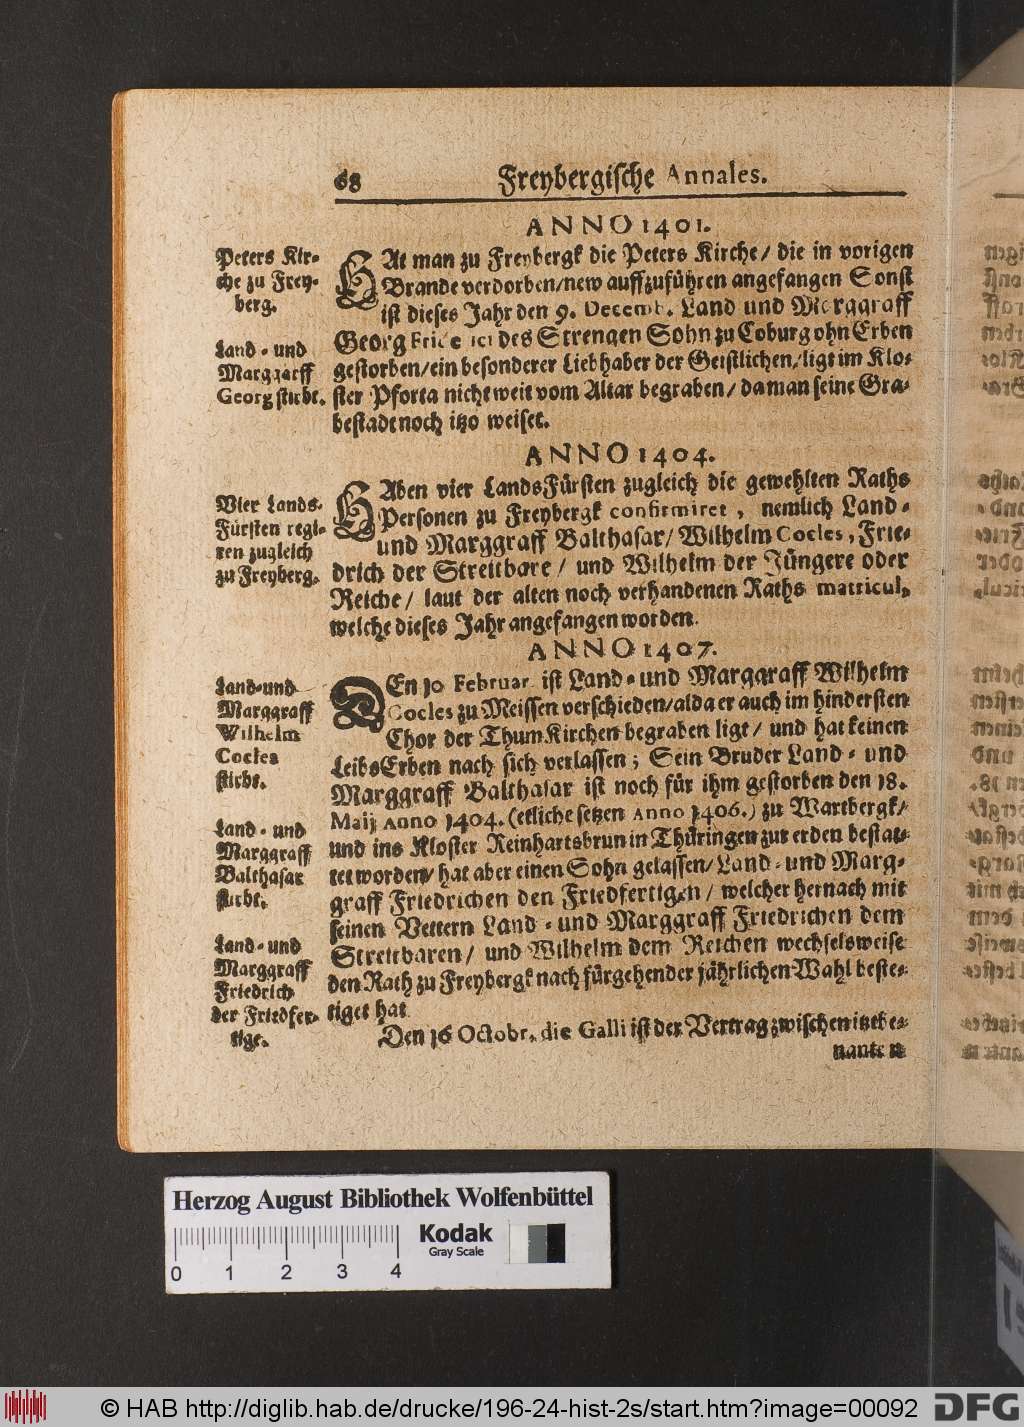 68
Freybergische Annales.
ANNO 1401.
Peters Kir-
che zu Frey-
berg.
Land- und
Marggraff
Georg stirbt.
HAt man zu Freybergk die Peters Kirche/ die in vorigen
Brande verdorben/ new auffzuführen angefangen Sonst
ist dieses Jahr den 9. Decemb. Land und Marggraff
Georg Friderici des Strengen Sohn zu Coburg ohn Erben
gestorben/ ein besonderer Liebhaber der Geistlichen/ ligt im Klo-
ster Pforta nicht weit vom Altar begraben/ da man seine Gra-
bestadt noch itzo weiset.
ANNO 1404.
Vier Lands-
Fürsten regi-
ren zugleich
zu Freyberg.
HAben vier LandsFürsten zugleich die gewehlten Raths
Personen zu Freybergk confirmiret, nemlich Land-
und Marggraff Balthasar/ Wilhelm Cocles, Frie-
drich der Streitbare/ und Wilhelm der Jüngere oder
Reiche/ laut der alten noch verhandenen Raths matricul,
welche dieses Jahr angefangen worden.
ANNO 1407.
Land-und
Marggraff
Wilhelm
Cocles
stirbt.
Land- und
Marggraff
Balthasar
stirbt.
Land- und
Marggraff
Friedrich
der Friedfer-
tige.
DEn 10 Februar. ist Land- und Marggraff Wilhelm
Cocles zu Meissen verschieden/ alda er auch im hindersten
Chor der ThumKirchen begraben ligt/ und hat keinen
LeibsErben nach sich verlassen; Sein Bruder Land- und
Marggraff Balthasar ist noch für ihm gestorben den 18.
Maij Anno 1404. (etliche setzen Anno 1406.) zu Wartbergk/
und ins Kloster Reinhartsbrun in Thüringen zur erden bestat-
tet worden/ hat aber einen Sohn gelassen/ Land- und Marg-
graff Friedrichen den Friedfertigen/ welcher hernach mit
seinen Vettern Land- und Marggraff Friedrichen dem
Streitbaren/ und Wilhelm dem Reichen wechselsweise
den Rath zu Freybergk nach fürgehender jährlichen Wahl beste-
tiget hat
Den 16 Octobr. die Galli ist der Vertrag zwischen itztbe-
nanten
Herzog August Bibliothek Wolfenbüttel
Kodak
Gray Scale
0 1 2 3 4
© HAB http://diglib.hab.de/drucke/196-24-hist-2s/start.htm?image=00092
DFG